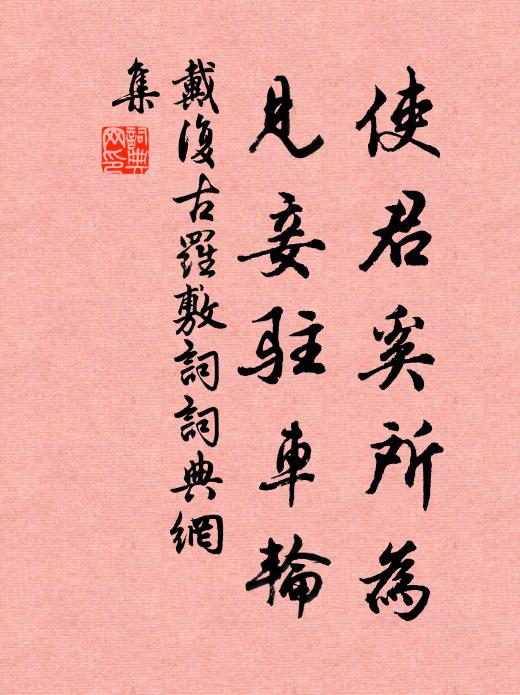 使君奚所為
見妾駐車輪
戴復古羅敷詞詞典網
集
詞典
网印